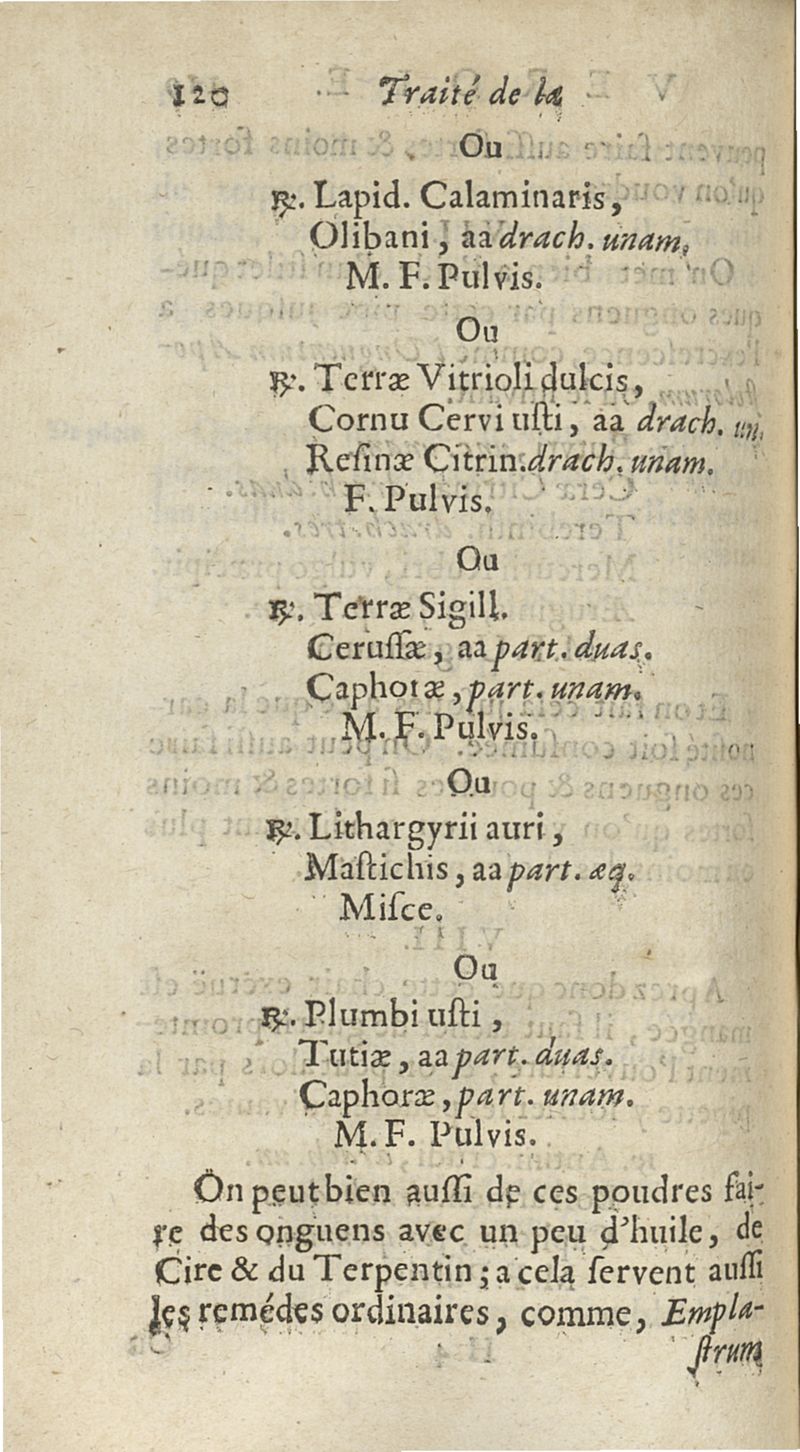 120 Traité de la
Ou
℞. Lapid. Calaminaris,
Olibani, aa drach. unam,
M. F. Pulvis.
Ou
℞. Terræ Vitrioli dulcis,
Cornu Cervi uſti, aa drach. un.
Reſinæ Citrin. drach. unam.
F. Pulvis.
Ou
℞. Terræ Sigill.
Ceruſſæ, aa part. duas.
Caphoræ, part. unam.
M. F. Pulvis.
Ou
℞. Lithargyrii auri,
Maſtichis, aa part. æq.
Miſce.
Ou
℞. Plumbi uſti,
Tutiæ, aa part. duas.
Caphoræ, part. unam.
M. F. Pulvis.
On peut bien auſſi de ces poudres fai-
re des onguens avec un peu d'huile, de
Cire & du Terpentin; a cela ſervent auſſi
les remédes ordinaires, comme, Empla-
ſtrum